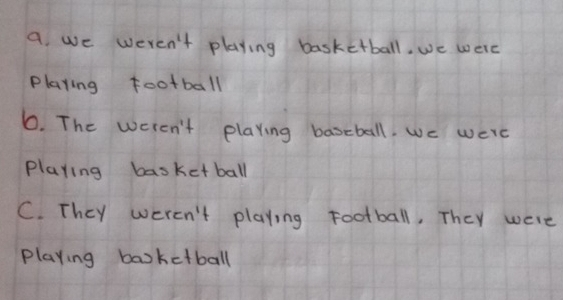 a. we weren't playing basketball. we were
playing football
b. The weren't playing baseball. we were
playing basketball
C. They weren't playing football. They were
playing basketball